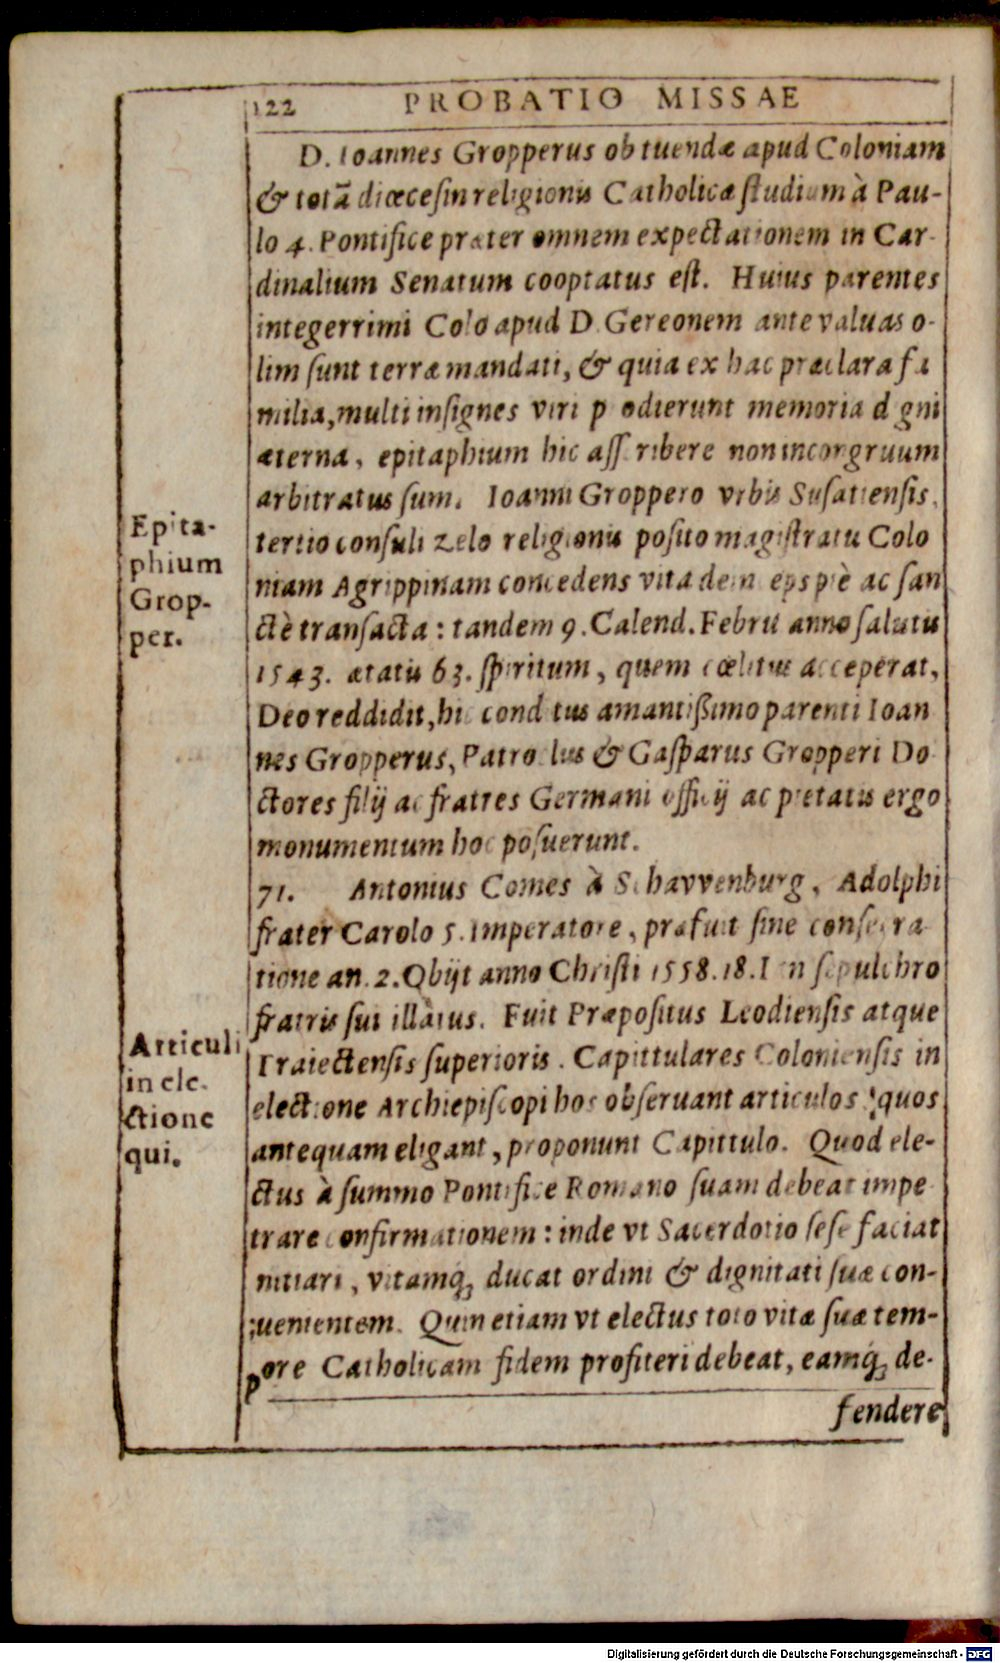 122 PROBATIO MISSAE
D. Ioannes Gropperus ob tuendæ apud Coloniam
& totã diœcesin religionis Catholicæ studium à Pau-
lo 4. Pontifice præter omnem expectationem in Car-
dinalium Senatum cooptatus est. Huius parentes
integerrimi Colo apud D. Gereonem ante valuas o-
lim sunt terræ mandati, & quia ex hac præclara fa
milia, multi insignes viri p odierunt memoria d gni
æterna, epitaphium hic ass ribere non incorgruum
arbitratus sum. Ioanni Groppero vrbis Susatiensis,
tertio consuli zelo religionis posito magistratu Colo
niam Agrippinam concedens vita dein eps piè ac san
ctè transacta: tandem 9. Calend. Febru anno salutis
1543. ætatis 63. spiritum, quem cœlitus acceperat,
Deo reddidit, hic cond tus amantißimo parenti Ioan
nes Gropperus, Patro lus & Gasparus Gropperi Do
ctores filij ac fratres Germani officij ac pietatis ergo
monumentum hoc posuerunt.
Epita-
phium
Grop-
per.
71. Antonius Comes à Schavvenburg, Adolphi
frater Carolo 5. Imperatore, præfuit sine consecra
tione an. 2. Obijt anno Christi 1558. 18. I n sepulchro
fratris sui illatus. Fuit Præpositus Leodiensis atque
Traiectensis superioris. Capittulares Coloniensis in
electione Archiepiscopi hos obseruant articulos: quos
antequam eligant, proponunt Capittulo. Quod ele-
ctus à summo Pontifice Romano suam debeat impe
trare confirmationem: inde vt Sacerdotio sese faciat
initiari, vitamq; ducat ordini & dignitati suæ con-
uenientem. Quin etiam vt electus toto vitæ suæ tem-
pore Catholicam fidem profiteri debeat, eamq́; de-
Articuli
in ele-
ctione
qui.
fendere
Digitalisierung gefördert durch die Deutsche Forschungsgemeinschaft - DFG